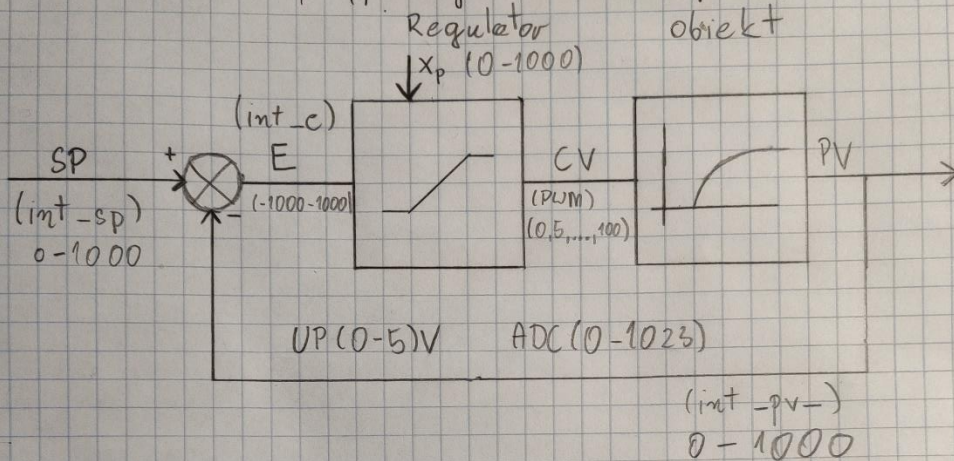 Regulator
obiekt
Xp (0-1000)
(int_c)
SP
+
E
CV
PV
(int-sp)
0-1000
-
(-1000-1000)
(PWM)
(0,5,...,100)
UP(0-5)V
ADC(0-1023)
(int-pv-)
0-1000